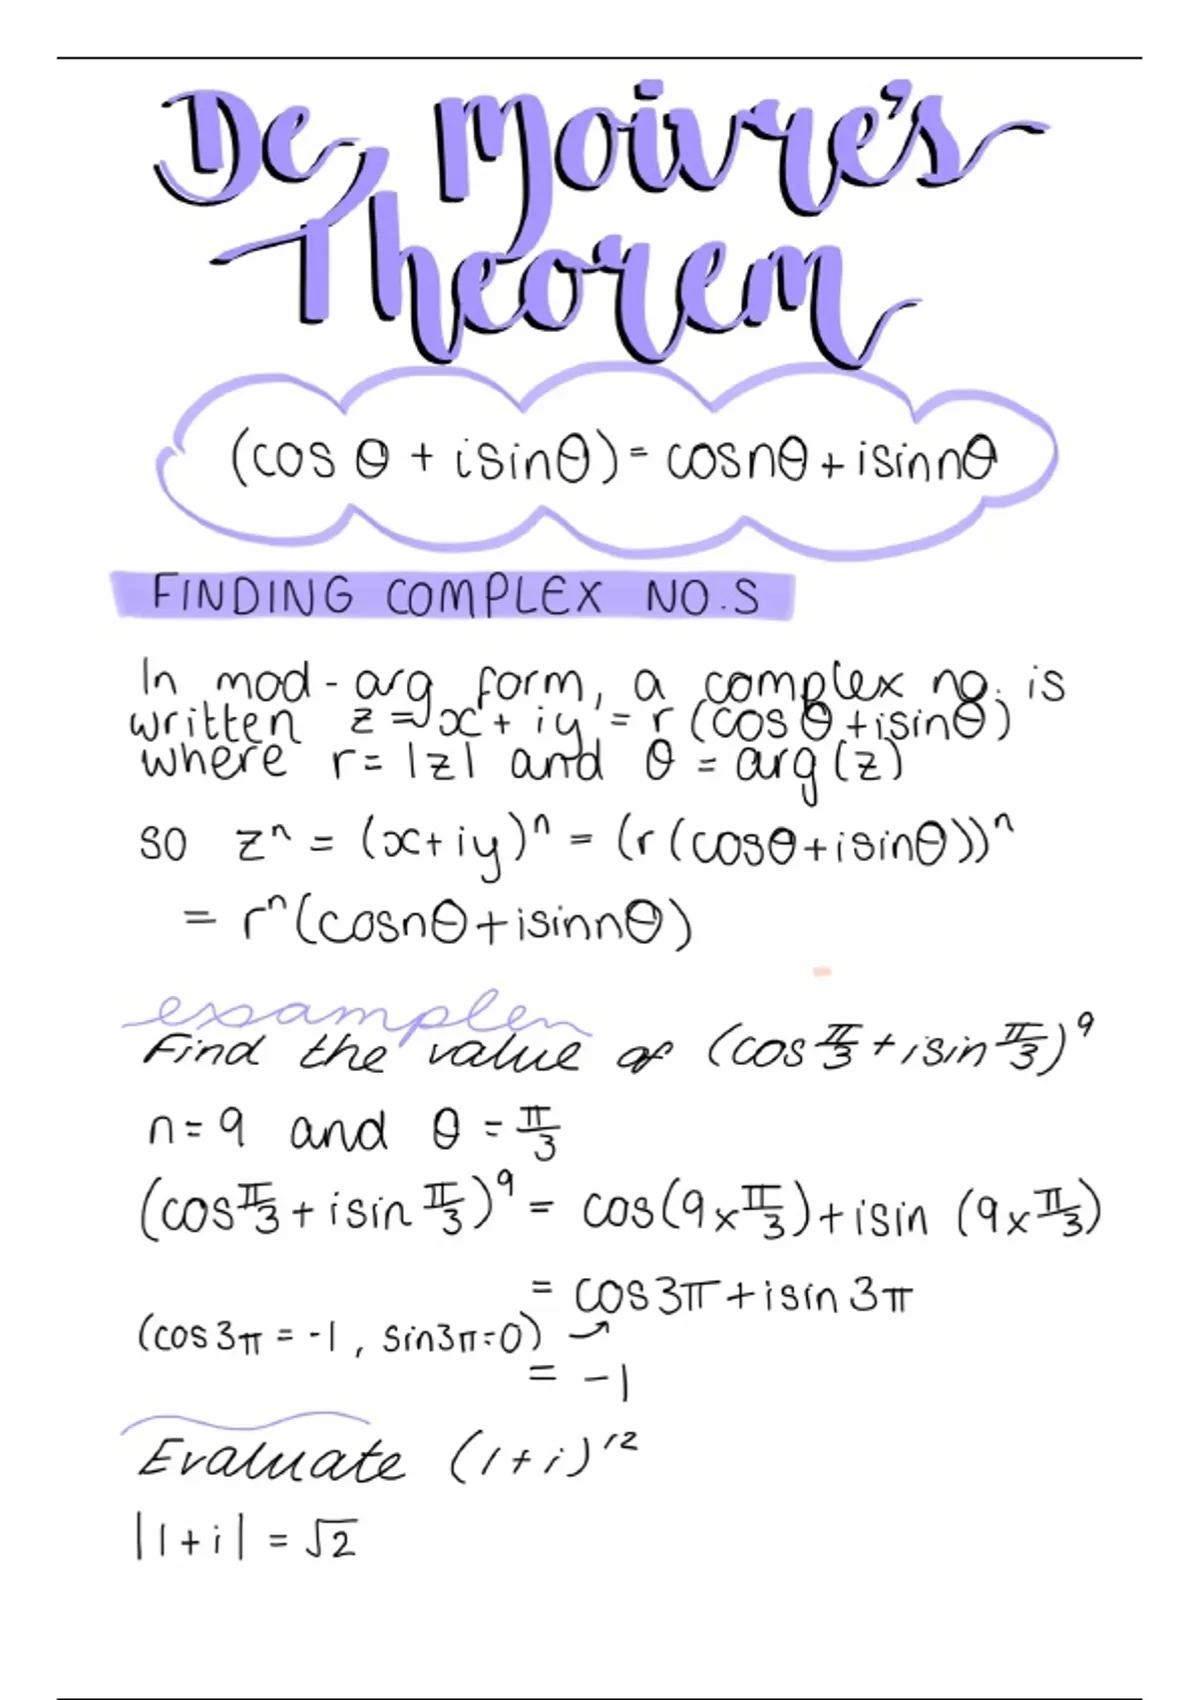 De Moivre's
Theorem
(cos θ + isinθ) = cosnθ + isinnθ
FINDING COMPLEX NO.S
In mod-arg form, a complex no. is
written z = x + iy = r (cos θ + isinθ)
where r = |z| and θ = arg(z)
so zⁿ = (x+iy)ⁿ = (r(cosθ+isinθ))ⁿ
= rⁿ(cosnθ+isinnθ)
example
Find the value of (cos π/3 + isin π/3)⁹
n=9 and θ = π/3
(cos π/3 + isin π/3)⁹ = cos(9×π/3) + isin (9×π/3)
= cos3π + isin 3π
(cos 3π = -1, sin3π=0)
= -1
Evaluate (1+i)¹²
|1+i| = √2